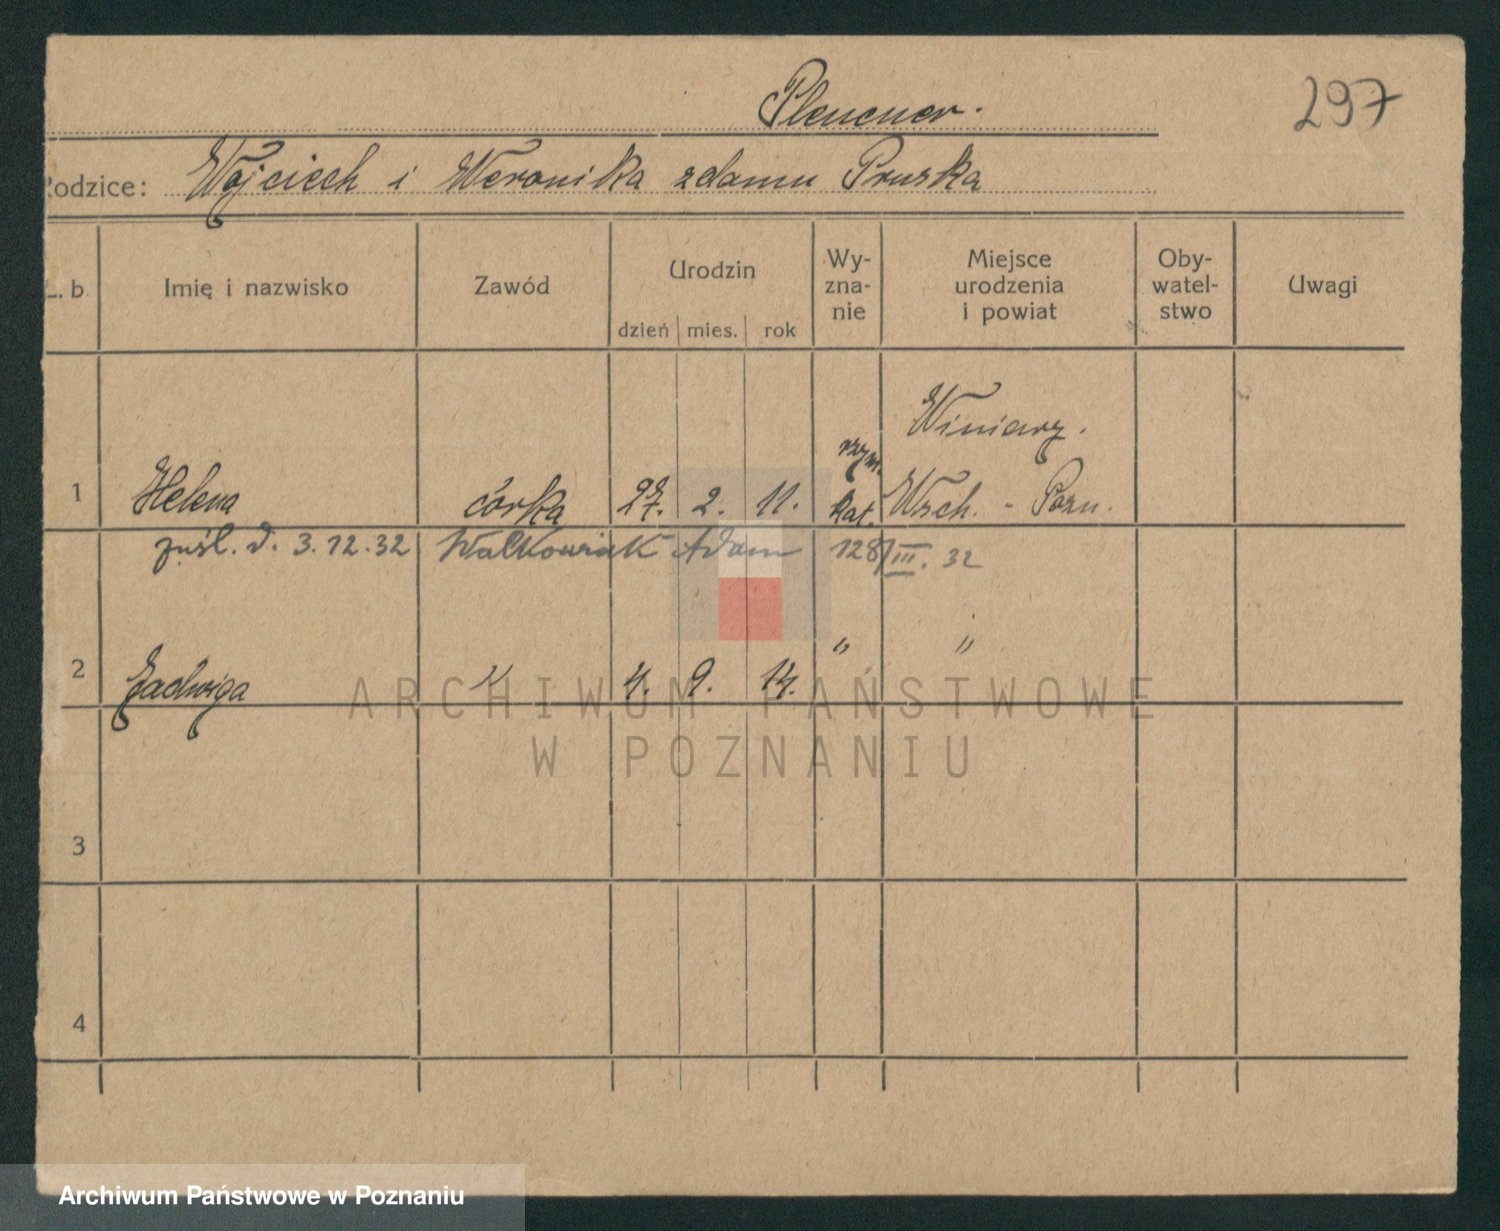 Plencner.
297
Rodzice: Wojciech i Weronika zdomu Pruska
L. b
Imię i nazwisko
Zawód
Urodzin
dzień mies. rok
Wy-
zna-
nie
Miejsce
urodzenia
i powiat
Oby-
watel-
stwo
Uwagi
Winiary.
rzym.
1 Helena córka 27. 2. 11. kat. Wsch. - Pozn.
zaśl. d. 3.12.32 Walkowiak Adam 128/III. 32
2 Jadwiga " 4. 9. 14. " "
3
4
ARCHIWUM PAŃSTWOWE
W POZNANIU
Archiwum Państwowe w Poznaniu